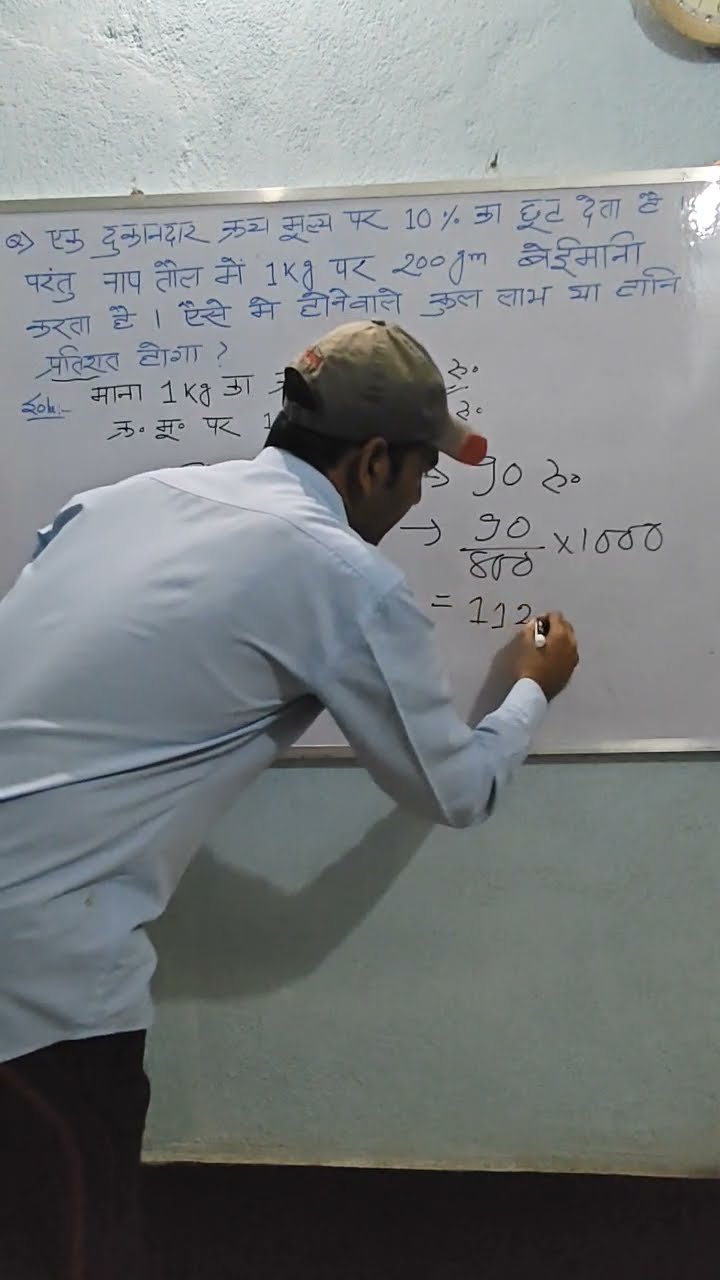 Q) एक दुकानदार क्रय मूल्य पर 10% का छूट देता है।
परंतु नाप तौल में 1Kg पर 200gm बेईमानी
करता है। ऐसे में होनेवाले कुल लाभ या हानि
प्रतिशत होगा?
Solu:- माना 1Kg का रु॰
क्र॰ मू॰ पर रु॰
90 रु॰
→ 90/800 ×1000
= 112